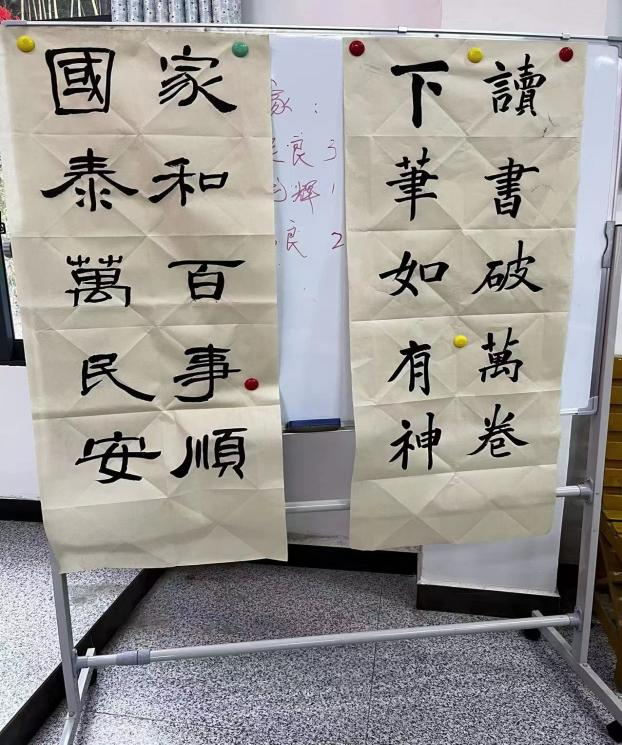 讀書破萬卷
下筆如有神
家和百事順
國泰萬民安
家：
良 3
輝 1
良 2